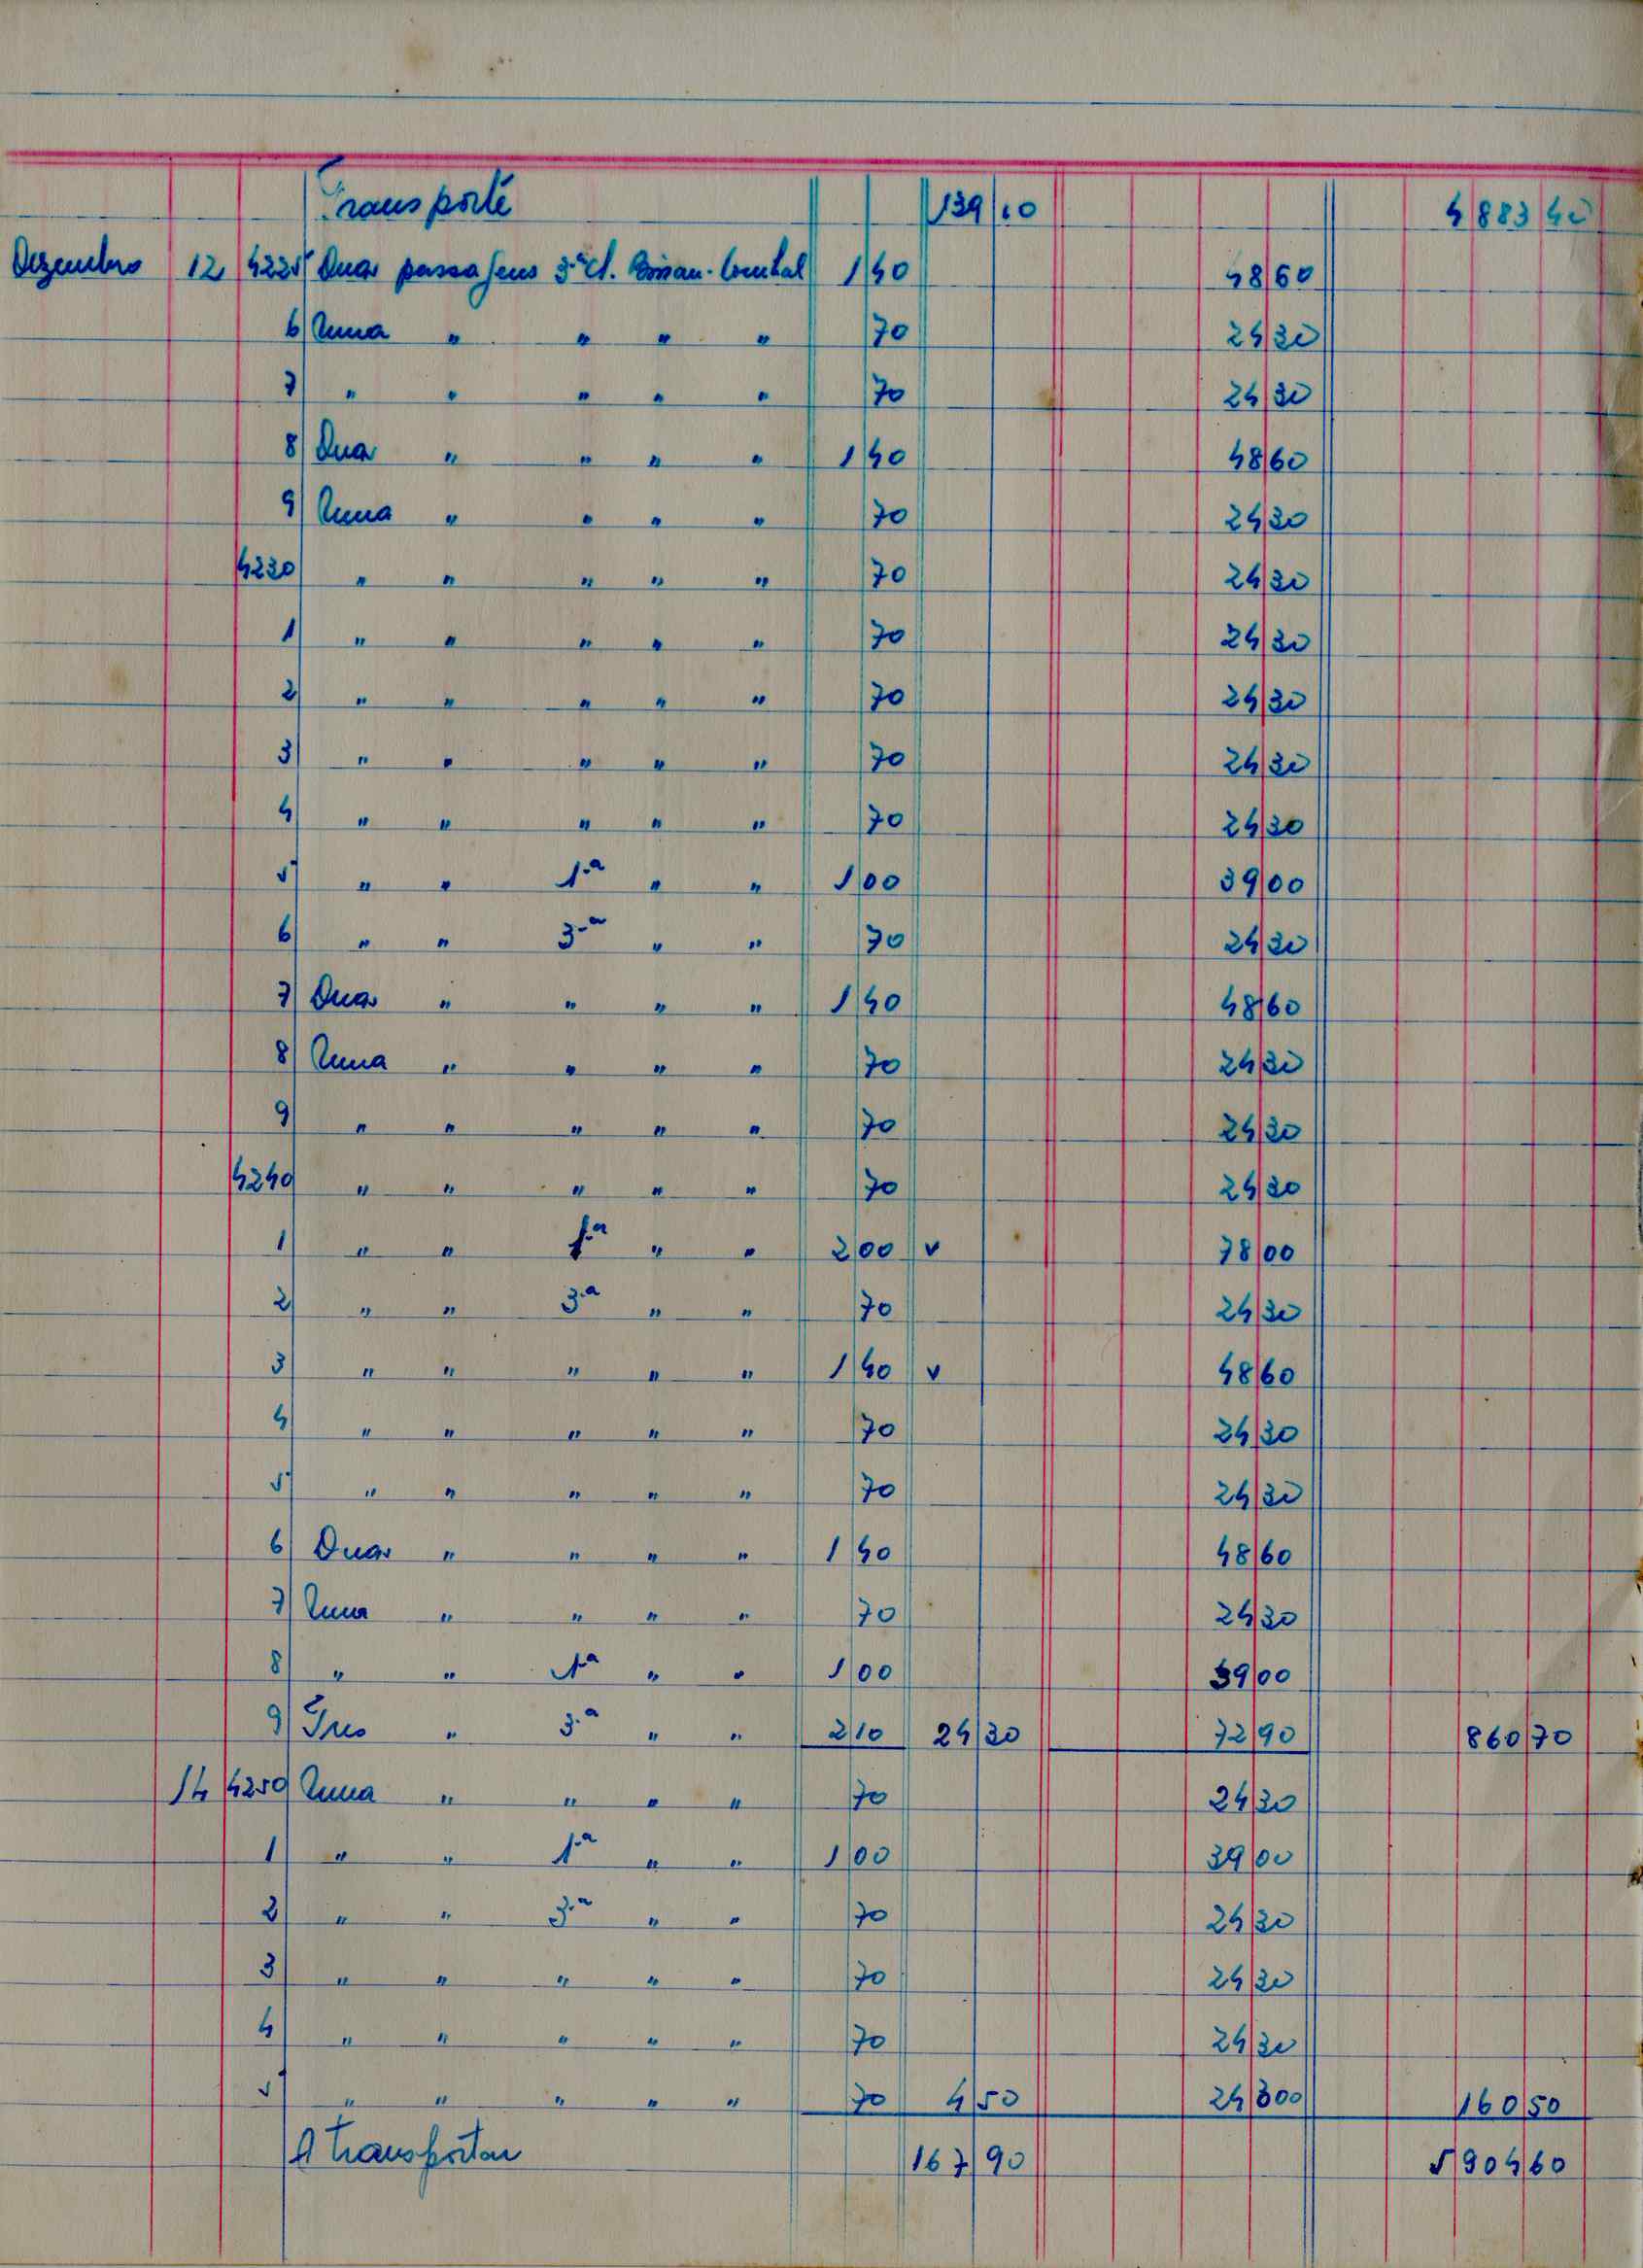 Transporte 139 10 4 883 40
Dezembro 12 4225 Duas passagens 3.ª cl. Bissau- 1 40 48 60
6 Uma " " " " 70 24 30
7 " " " " " 70 24 30
8 Duas " " " " 1 40 48 60
9 Uma " " " " 70 24 30
4230 " " " " " 70 24 30
1 " " " " " 70 24 30
2 " " " " " 70 24 30
3 " " " " " 70 24 30
4 " " " " " 70 24 30
5 " " 1.ª " " 1 00 39 00
6 " " 3.ª " " 70 24 30
7 Duas " " " " 1 40 48 60
8 Uma " " " " 70 24 30
9 " " " " " 70 24 30
4240 " " " " " 70 24 30
1 " " 1.ª " " 2 00 v 78 00
2 " " 3.ª " " 70 24 30
3 " " " " " 1 40 v 48 60
4 " " " " " 70 24 30
5 " " " " " 70 24 30
6 Duas " " " " 1 40 48 60
7 Uma " " " " 70 24 30
8 " " 1.ª " " 1 00 39 00
9 Tres " 3.ª " " 2 10 24 30 72 90 860 70
14 4250 Uma " " " " 70 24 30
1 " " 1.ª " " 1 00 39 00
2 " " 3.ª " " 70 24 30
3 " " " " " 70 24 30
4 " " " " " 70 24 30
5 " " " " " 70 4 50 24 300 160 50
A transportar 167 90 5 904 60